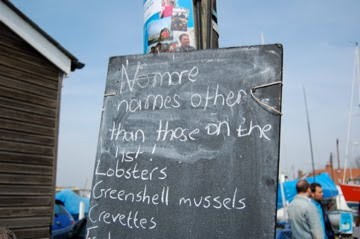 No more
names other
than those on the
list!
Lobsters
Greenshell mussels
Crevettes